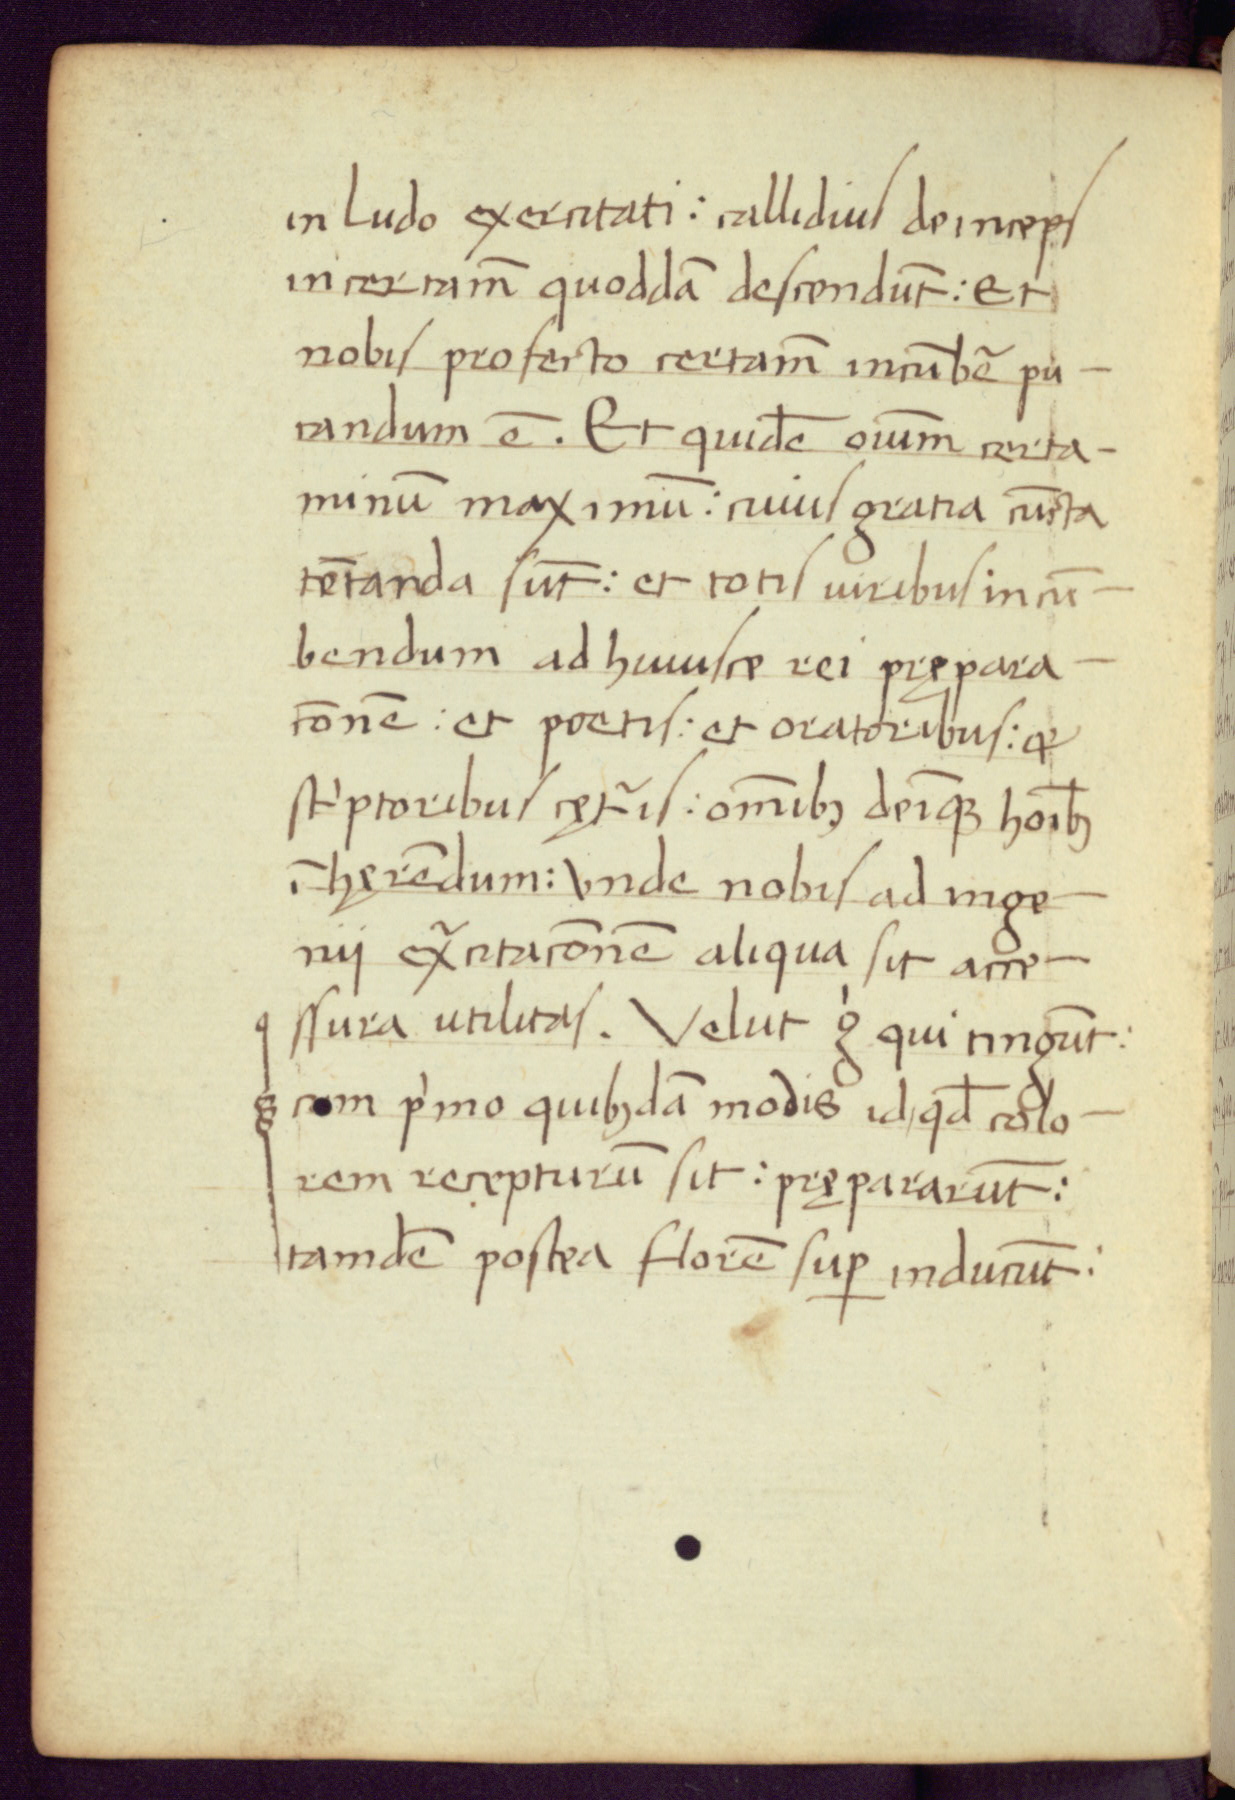 in ludo exercitati: callidius deinceps
in certam̄ quoddā descendūt: Et
nobis profecto certam̄ incūbē pu-
tandum ē. Et quidē oium̄ certa-
minū maximū: cuius gratia cūcta
tētanda sūt: et totis uiribus incū-
bendum ad huiusce rei prępara-
tōnē: et poetis: et oratoribus: &
scͥptoribus cęt̃is: om̄ibꝫ deīqꝫ hoībꝫ
īhęrēdum: Vnde nobis ad inge-
nij ex̃citatōnē aliqua sit acce-
ssura utilitas. Velut gͥ qui tingūt:
cum pͥmo quibꝫdā modis id qd̄ colo-
rem recepturū sit: prępararūt:
tamdē postea florē suꝑ inducūt: